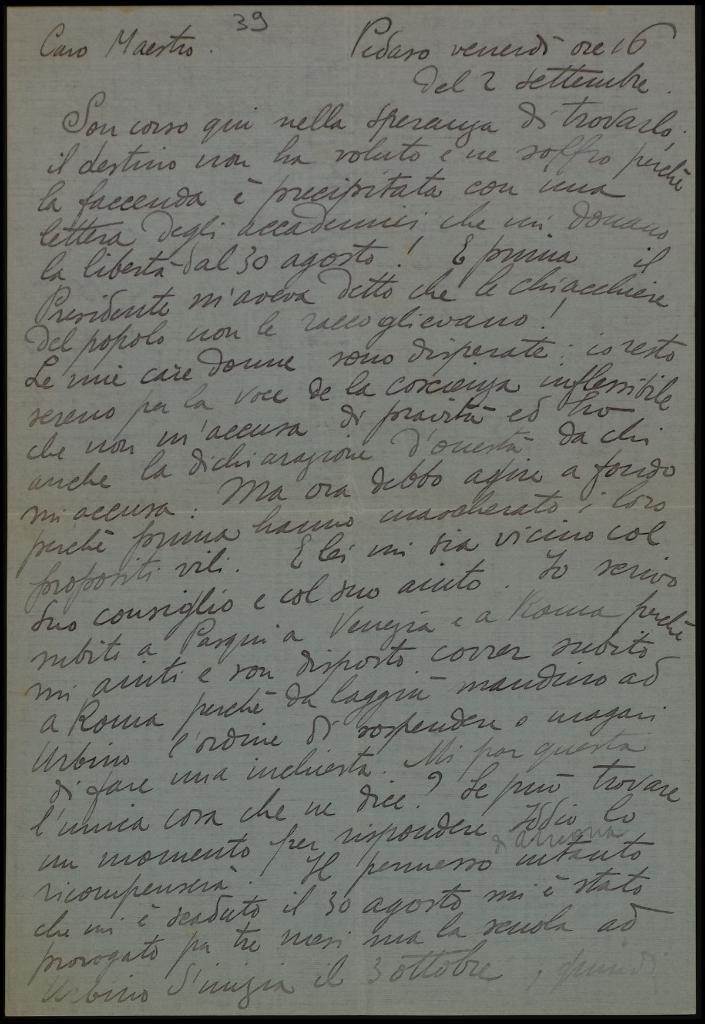 39
Caro Maestro. Pedaso venerdì ore 16
del 2 settembre.
Son corso qui nella speranza di trovarlo,
il destino non ha voluto e ne soffro perchè
la faccenda è precipitata con una
lettera degli accademici che mi donano
la libertà dal 30 agosto! E prima il
Presidente m'aveva detto che le chiacchiere
del popolo non le raccoglievano!
Le mie care donne sono disperate: io resto
sereno per la voce de la coscienza inflessibile
che non m'accusa di pravità ed ho
anche la dichiarazione d'onestà da chi
mi accusa. Ma ora debbo agire a fondo
perchè prima hanno mascherato i loro
propositi vili. E lei mi sia vicino col
suo consiglio e col suo aiuto. Io scrivo
subito a Pasqui a Venezia e a Roma perchè
mi aiuti e son disposto correr subito
a Roma perchè da laggiù mandino ad
Urbino l'ordine di sospendere o magari
di fare una inchiesta. Mi par questa
l'unica cosa che ne dice? Se può trovare
un momento per rispondere Iddio lo
ricompenserà. Il permesso intanto
che mi è scaduto il 30 agosto mi è stato
prorogato per tre mesi ma la scuola ad
Urbino s'inizia il 3 ottobre, quindi